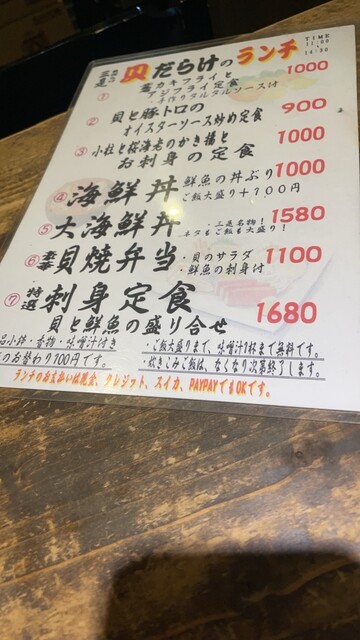 貝だらけのランチ
TIME
11:00
14:30
① 釜カキフライと
アジフライ定食 1000
・手作りタルタルソース付
② 貝と豚トロの
オイスターソース炒め定食 900
③ 小柱と桜海老のかき揚と
お刺身の定食 1000
④ 海鮮丼 鮮魚の丼ぶり 1000
ご飯大盛り+100円
⑤ 大海鮮丼 ・三是名物! 1580
ネタもご飯も大盛り!
⑥ 豪華貝焼弁当 ・貝のサラダ 1100
・鮮魚の刺身付
⑦ 特選刺身定食
貝と鮮魚の盛り合せ 1680
品小鉢・香物・味噌汁付き
のお替わり100円です。
・ご飯大盛りまで、味噌汁1杯まで無料です。
・炊きこみご飯は、なくなり次第終了します。
ランチのお支払いは現金、クレジット、スイカ、PAYPAYでもOKです。